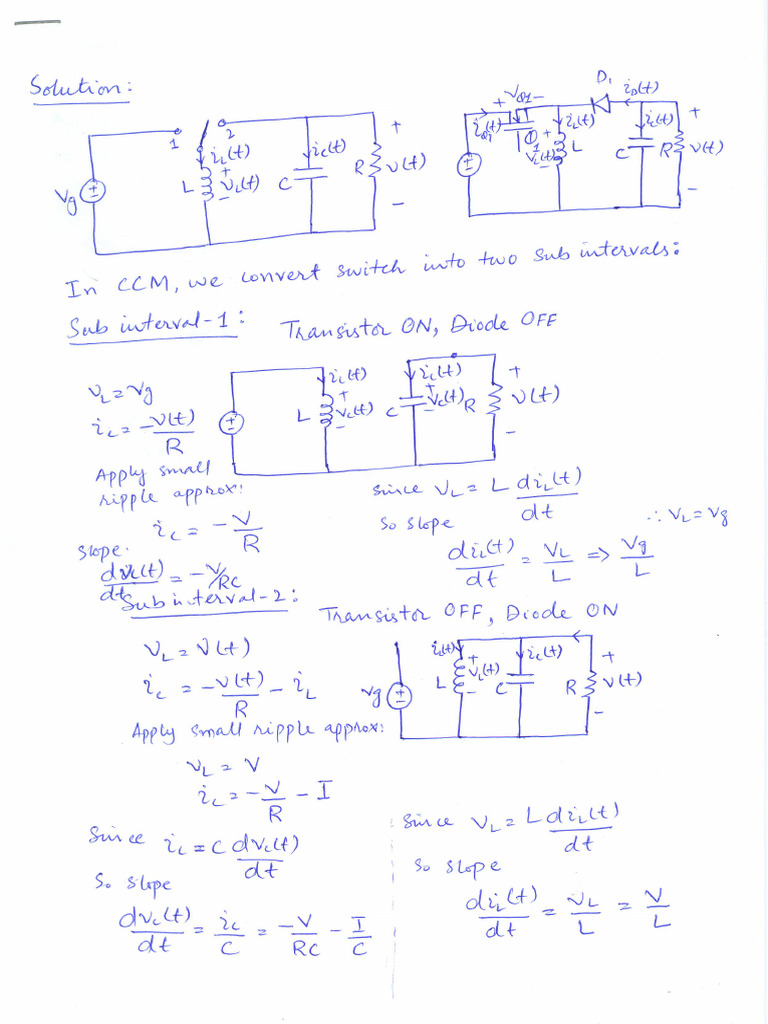 Solution:
1 2 i_L(t) L + v_L(t) − i_C(t) C R + v(t) − Vg
+ V_Q1 − i_Q1(t) Q1 D1 i_D(t) i_L(t) + v_L(t) − L i_C(t) C R + v(t) −
In CCM, we convert switch into two sub intervals:
Sub interval-1: Transistor ON, Diode OFF
i_L(t) L + v_L(t) − i_C(t) C + v_C(t) − R + v(t) −
v_L = Vg
i_C = −v(t)/R
Apply small
ripple approx:
i_C = −V/R
Slope:
dv_C(t)/dt = −V/RC
Since v_L = L di_L(t)/dt
So slope ∴ v_L = Vg
di_L(t)/dt = V_L/L => Vg/L
Sub interval-2: Transistor OFF, Diode ON
v_L = v(t)
i_C = −v(t)/R − i_L
Vg i_L(t) L + v_L(t) − i_C(t) C R + v(t) −
Apply small ripple approx:
v_L = V
i_C = −V/R − I
Since i_C = C dv_C(t)/dt
So slope
dv_C(t)/dt = i_C/C = −V/RC − I/C
Since v_L = L di_L(t)/dt
So slope
di_L(t)/dt = v_L/L = V/L